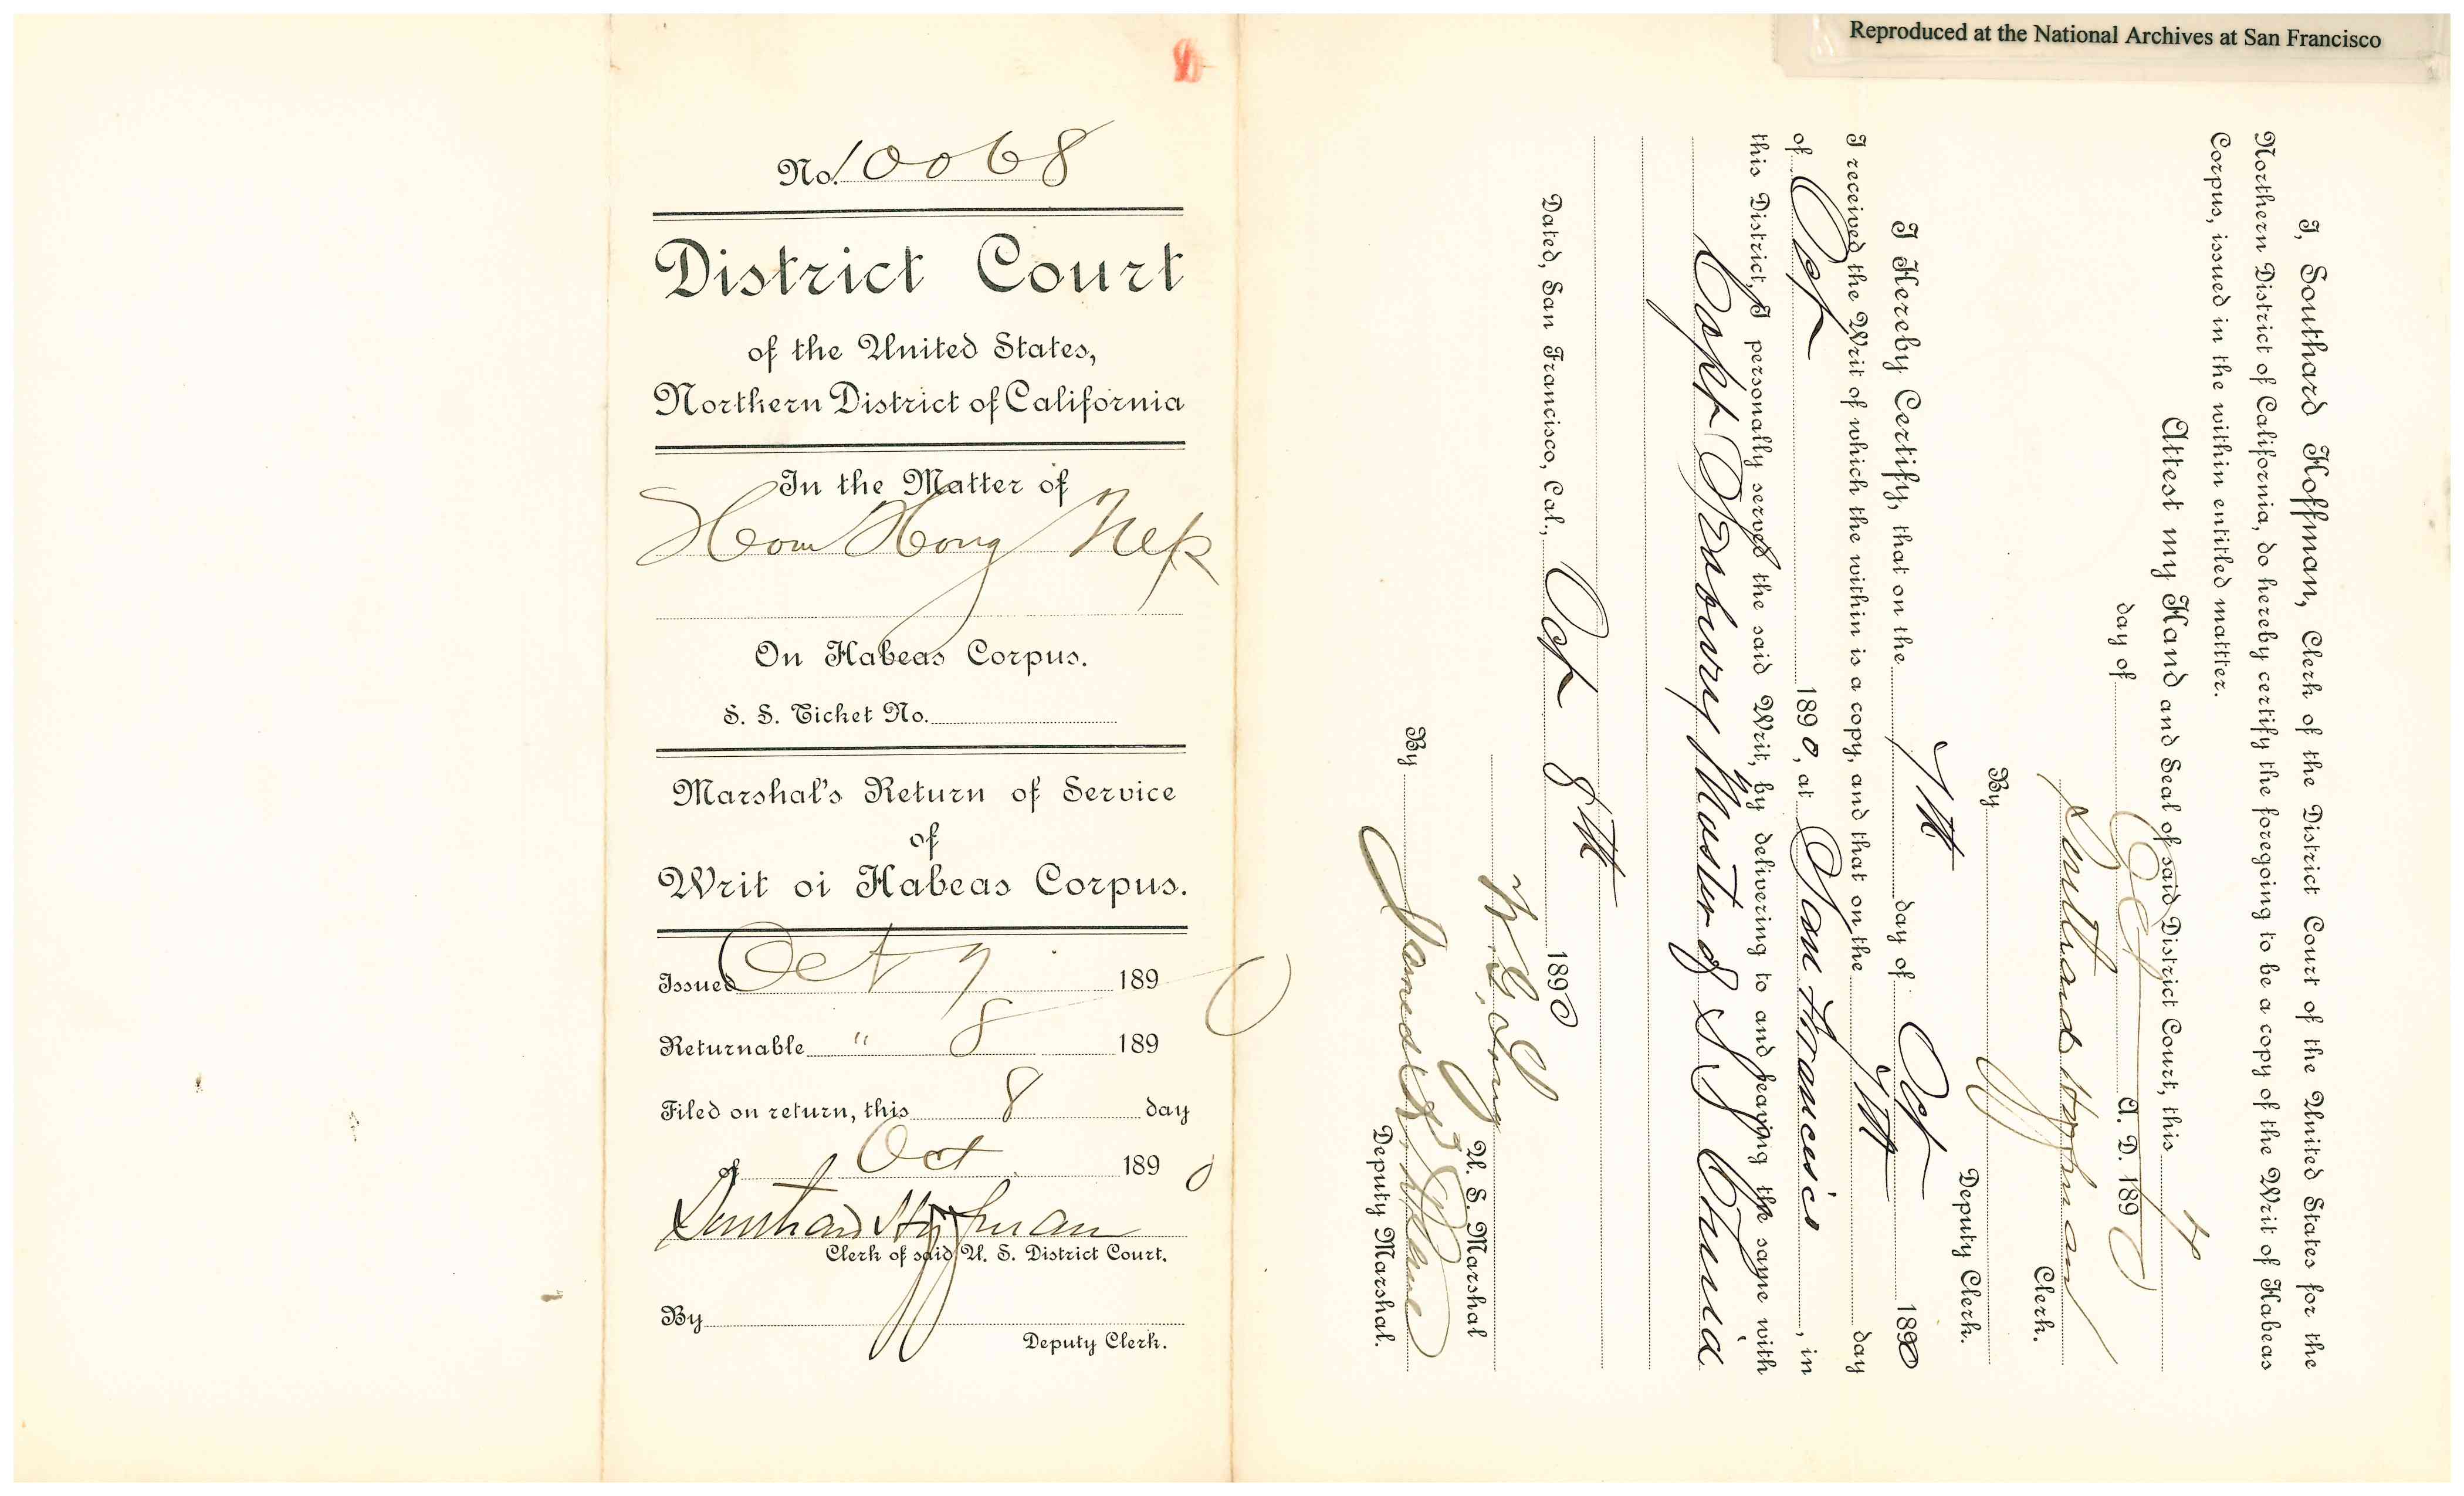 Reproduced at the National Archives at San Francisco
No. 10068
District Court
of the United States,
Northern District of California
In the Matter of
Hom Hong Nep
On Habeas Corpus.
S. S. Ticket No.
Marshal's Return of Service
of
Writ oi Habeas Corpus.
Issued Oct 7 189
Returnable " 8 189
Filed on return, this 8 day
of Oct 1890
Southard Hoffman
Clerk of said U. S. District Court.
By
Deputy Clerk.
I, Southard Hoffman, Clerk of the District Court of the United States for the
Northern District of California, do hereby certify the foregoing to be a copy of the Writ of Habeas
Corpus, issued in the within entitled mattter.
Attest my Hand and Seal of said District Court, this 7
day of Oct A. D. 1890
Southard Hoffman
Clerk.
By
Deputy Clerk.
I Hereby Certify, that on the 7th day of Oct 1890
I received the Writ of which the within is a copy, and that on the 7th day
of Oct 1890, at San Francisco, in
this District, I personally served the said Writ, by delivering to and leaving the same with
Capt Seabury Master of SS China
Dated, San Francisco, Cal., Oct 8th 1890
W. G. Long
U. S. Marshal
By James
Deputy Marshal.